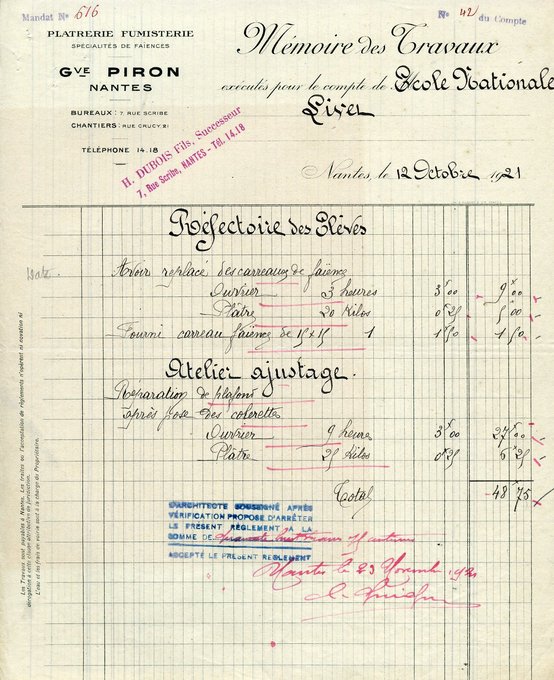 Mandat No 616
No 42 du Compte
PLATRERIE FUMISTERIE
SPÉCIALITÉS DE FAÏENCES
GVE PIRON
NANTES
BUREAUX: 7 RUE SCRIBE
CHANTIERS: RUE CRUCY 21
TÉLÉPHONE 14.18
H. DUBOIS Fils, Successeur
7, Rue Scribe, NANTES - Tel. 14.18
Mémoire des Travaux
exécutés pour le compte de Ecole Nationale
Livet
Nantes, le 12 Octobre 1921
Réfectoire des Elèves
Avoir replacé des carreaux de faïence
Ouvrier 3 heures 3f00 9f00
Plâtre 20 Kilos 0 25 5 00
Fourni carreau faïence de 15 x 15 1 1 50 1 50
Atelier ajustage.
Reparation de plafond
après pose des colerettes
Ouvrier 9 heures 3f00 27f00
Plâtre 25 Kilos 0 25 6 25
Total 48 75
L'ARCHITECTE SOUSSIGNÉ APRÈS
VÉRIFICATION PROPOSE D'ARRÊTER
LE PRÉSENT RÈGLEMENT A LA
SOMME DE quarante huit francs 75 centimes
ACCEPTÉ LE PRÉSENT REGLEMENT
Nantes le 23 Novembre 1921
Les Travaux sont payables à Nantes. Les traites ou l'acceptation de règlements n'opèrent ni novation ni
dérogation à cette clause attributive de juridiction.
L'eau et les frais de voirie sont à la charge du Propriétaire.